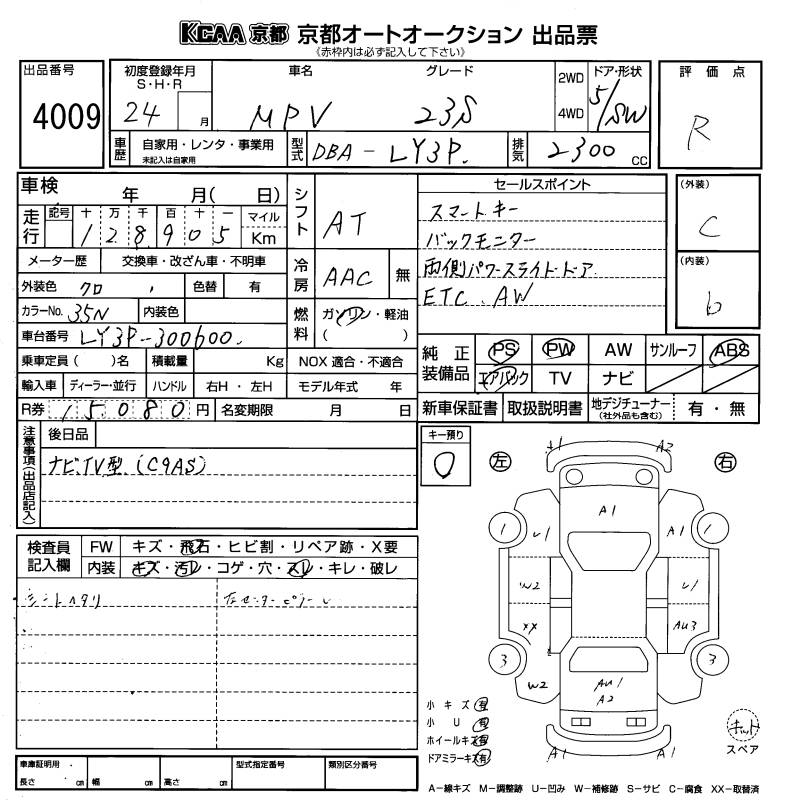 KCAA 京都 京都オートオークション 出品票
《赤枠内は必ず記入して下さい》
出品番号
4009
初度登録年月
S・H・R
24 月
車名
MPV
グレード
23S
2WD
4WD
ドア・形状
5/SW
評価点
R
車歴
自家用・レンタ・事業用
未記入は自家用
型式
DBA-LY3P
排気
2300 CC
車検 年 月( 日)
走行
記号 十 万 千 百 十 一
128905
マイル
Km
シフト
AT
セールスポイント
スマートキー
バックモニター
両側パワースライドドア
ETC. AW
(外装)
C
(内装)
b
メーター歴 交換車・改ざん車・不明車
外装色 クロ 色替 有
カラーNo. 35N 内装色
車台番号 LY3P-300600
冷房
AAC 無
燃料
ガソリン・軽油
( )
乗車定員 ( )名 積載量 Kg NOX 適合・不適合
輸入車 ディーラー・並行 ハンドル 右H・左H モデル年式 年
R券 15080 円 名変期限 月 日
純正装備品
PS PW AW サンルーフ ABS
エアバック TV ナビ
新車保証書 取扱説明書 地デジチューナー
(社外品も含む)
有・無
注意事項(出品店記入)
後日品
ナビ.TV型 (C9AS)
キー預り
左
右
A2
A1
U1
A1
1
1
W2
U1
XX
AU3
3
3
W2
AU1
A2
A1
A1
検査員記入欄
FW キズ・飛石・ヒビ割・リペア跡・X要
内装 キズ・汚レ・コゲ・穴・スレ・キレ・破レ
シートヘタリ
小キズ 有
小U 有
ホイールキズ 有
ドアミラーキズ 有
キット
スペア
車庫証明用
長さ cm 幅 cm 高さ cm
型式指定番号
類別区分番号
A－線キズ M－調整跡 U－凹み W－補修跡 S－サビ C－腐食 XX－取替済